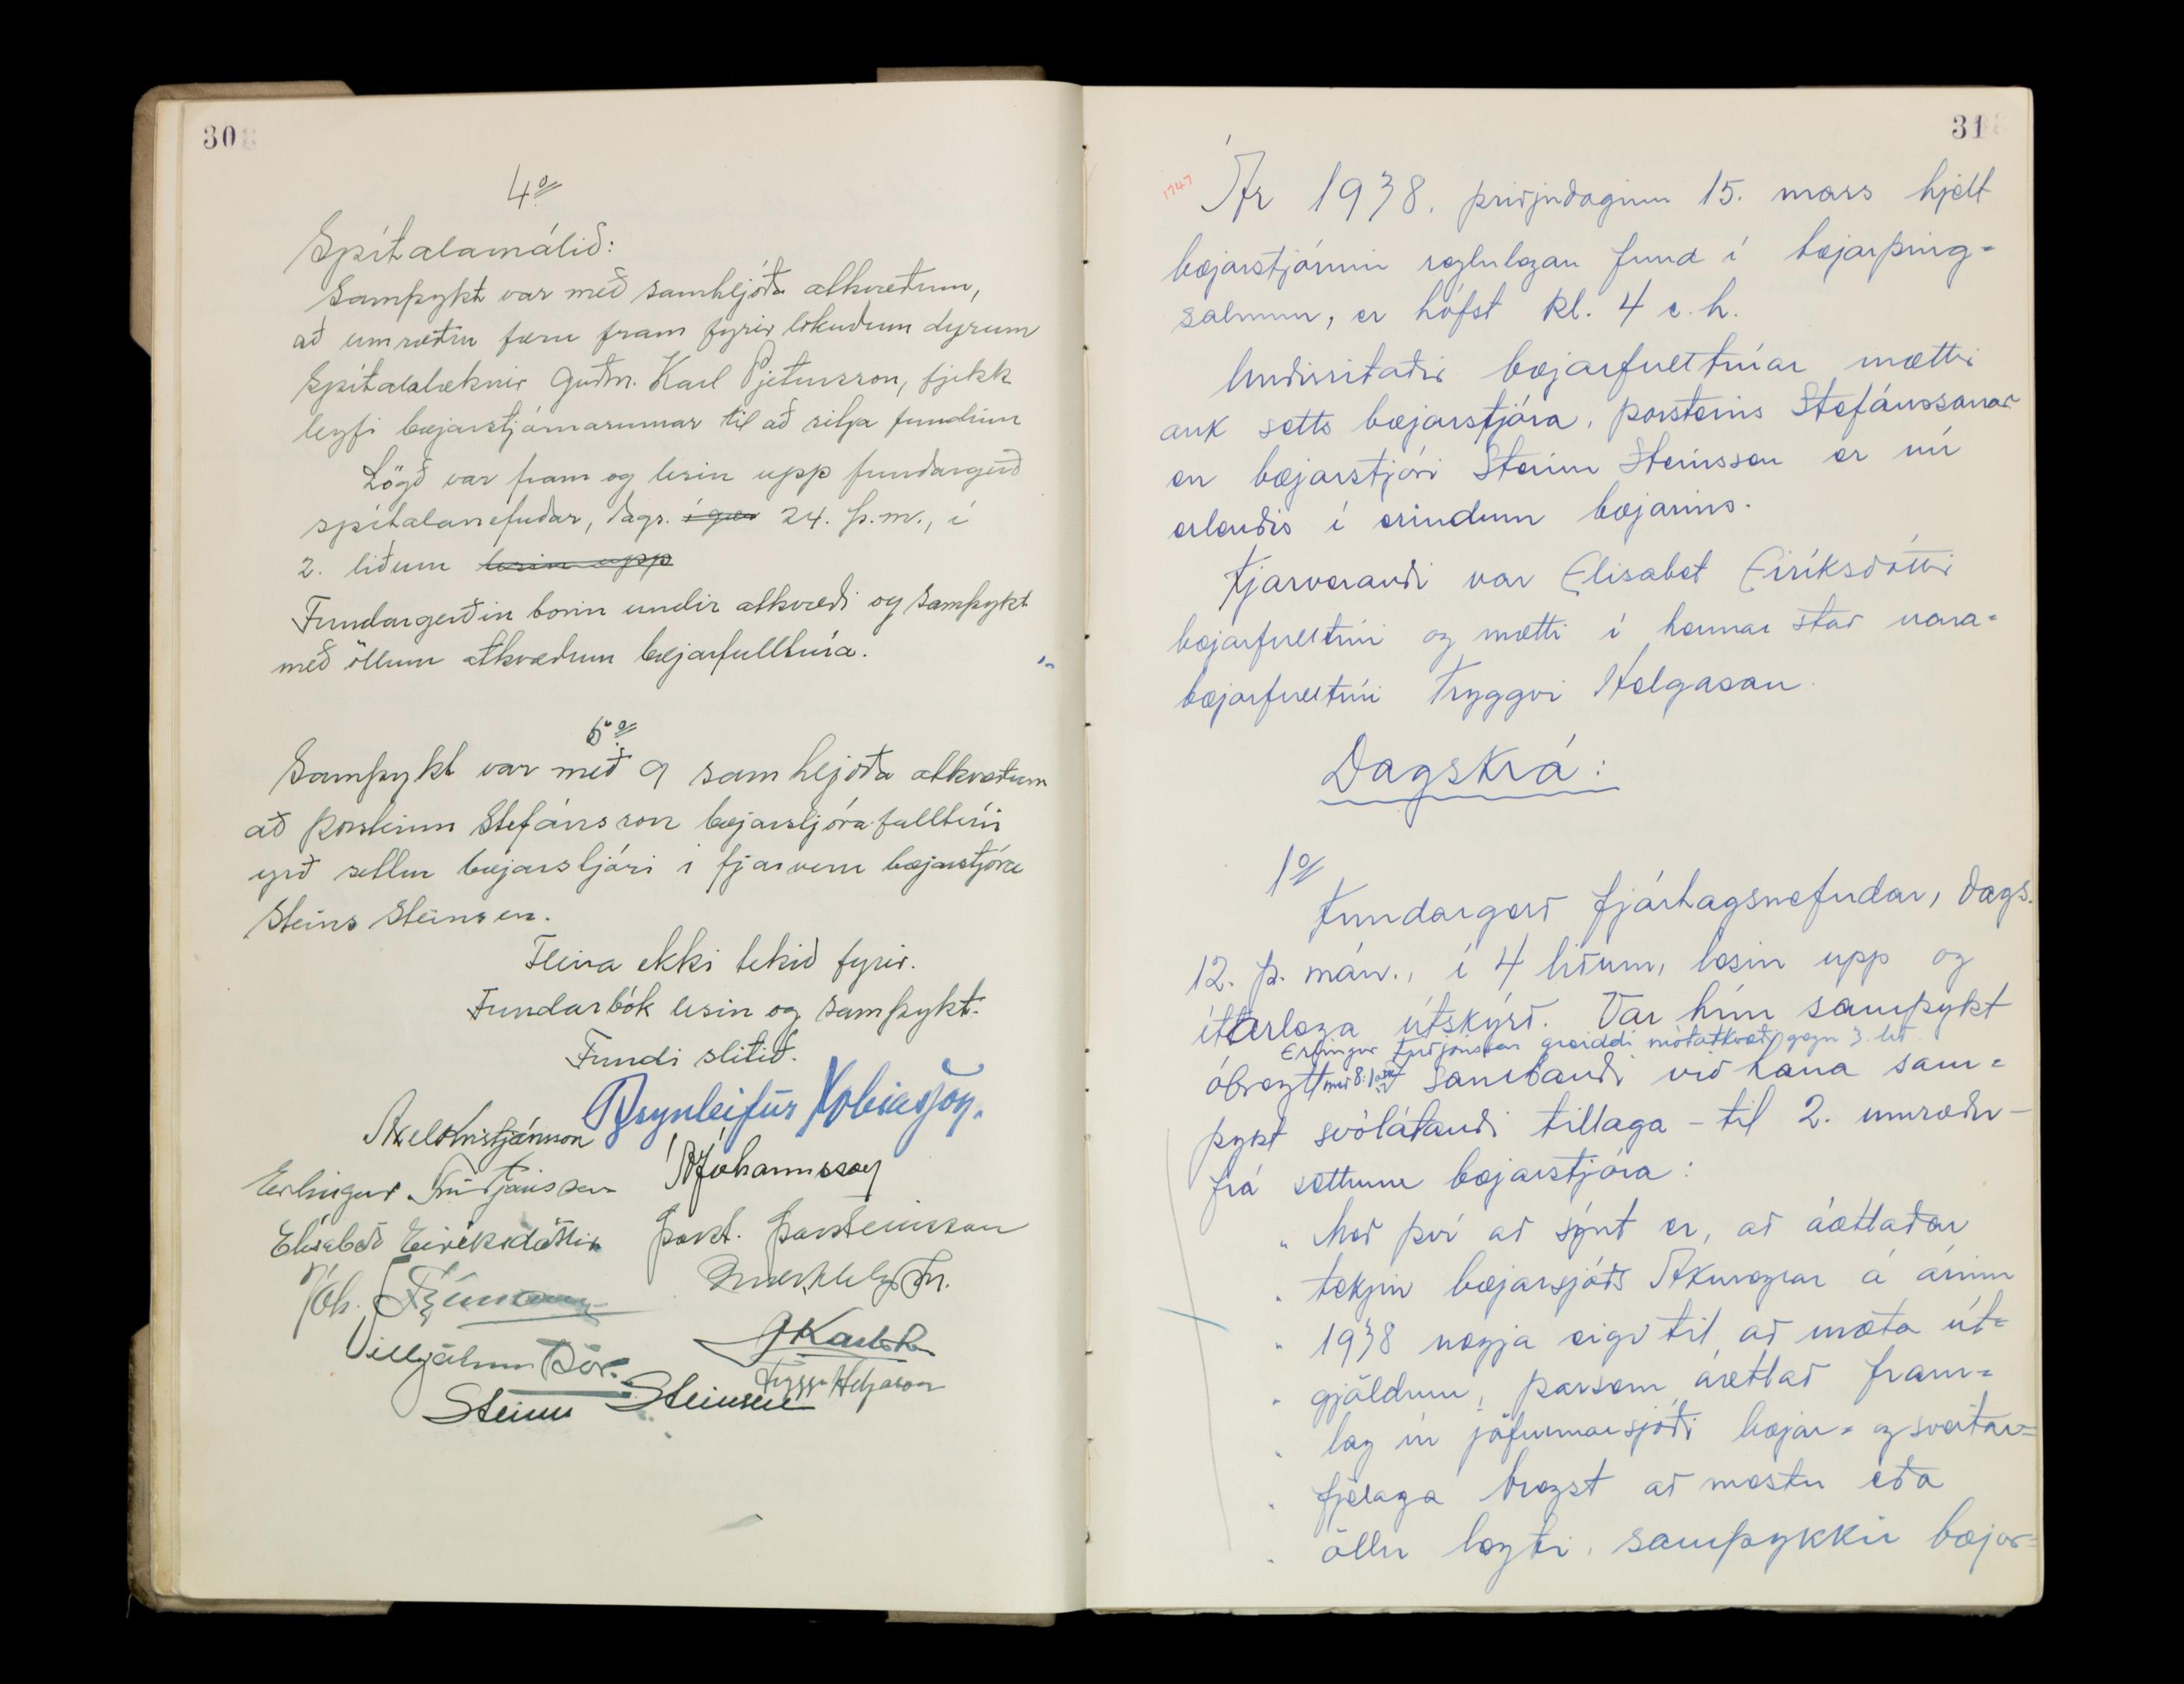 30
4º
Spítalamálið:
Samþykt var með samhljóða atkvæðum,
að umræðin færu fram fyrir lokuðum dyrum
Spítalalæknir Guðm. Karl Pjetursson, fjekk
leyfi bæjarstjórnarinnar til að sitja fundinn
Lögð var fram og lesin upp fundargerð
spítalanefndar, dags. í gær 24. þ.m., í
2. liðum lesin upp
Fundargerðin borin undir atkvæði og samþykt
með öllum atkvæðum bæjarfulltrúa.
5º
Samþykt var með 9 samhljóða atkvæðum
að Þorsteinn Stefánsson bæjarstjórafulltrúi
yrð settur bæjarstjóri í fjarveru bæjarstjóra
Steins Steinsen.
Fleira ekki tekið fyrir.
Fundarbók lesin og samþykt.
Fundi slitið.
Brynleifur Tobiasson.
Axel Kristjánsson
Jóhannsson
Erlingur Friðjónsson
Elísabeð Eiríksdóttir
Þorst. Þorsteinsson
Jóh. Frímann
Vilhjálmur Þór.
Tryggvi Helgason
Steinn Steinsen
31
1747
Ár 1938, þriðjudaginn 15. mars hjelt
bæjarstjórnin reglulegan fund í bæjarþing-
salnum, er hófst kl. 4 e.h.
Undirritaðir bæjarfulltrúar mættu
auk setts bæjarstjóra, Þorsteins Stefánssonar
en bæjarstjóri Steinn Steinsen er nú
erlendis í erindum bæjarins.
Fjarverandi var Elisabet Eiríksdóttir
bæjarfulltrúi og mætti í hennar stað vara-
bæjarfulltrúi Tryggvi Helgason.
Dagskrá:
1º
Fundargerð fjárhagsnefndar, dags.
12. þ. mán., í 4 liðum, lesin upp og
ítarlega útskýrð. Var hún samþykt
Erlingur Friðjónsson greiddi mótatkvæði gegn 3. lið
óbreytt með 8:1 atkv. Í sambandi við hana sam-
þykt svölátandi tillaga - til 2. umræðu -
frá settum bæjarstjóra:
" Með því að sýnt er, að áætlaðar
" tekjur bæjarsjóðs Akureyrar á árinu
" 1938 nægja eigi til að mæta út-
" gjöldum, þarsem áætlað fram-
" lag úr jöfnunarsjóði bæjar- og sveitar-
" fjelaga bregst að mestu eða
" öllu leyti, samþykkir bæjar-